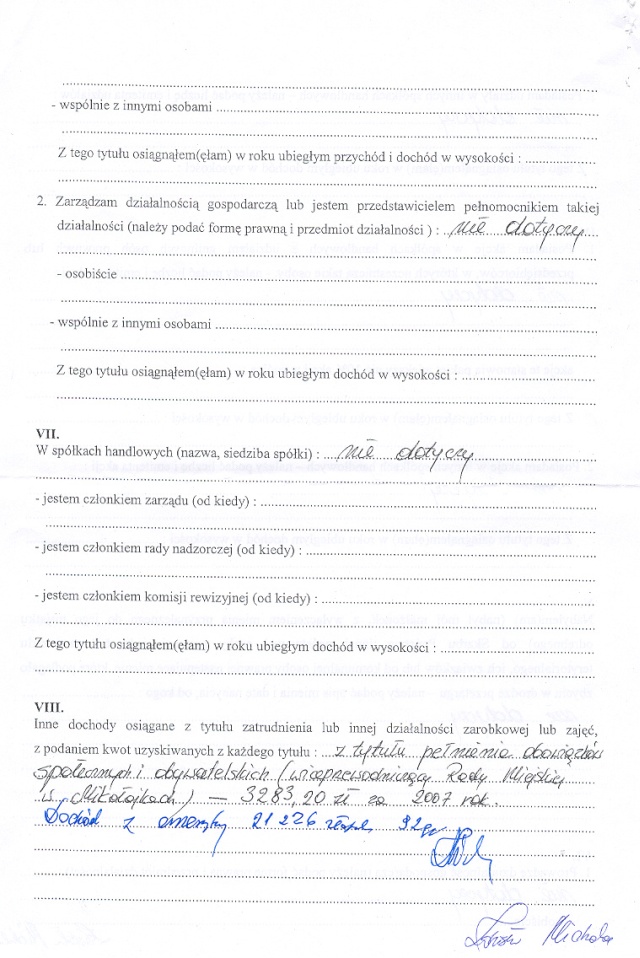 - wspólnie z innymi osobami
Z tego tytułu osiągnąłem(ęłam) w roku ubiegłym przychód i dochód w wysokości :
2. Zarządzam działalnością gospodarczą lub jestem przedstawicielem pełnomocnikiem takiej
działalności (należy podać formę prawną i przedmiot działalności ) : nie dotyczy
- osobiście
- wspólnie z innymi osobami
Z tego tytułu osiągnąłem(ęłam) w roku ubiegłym dochód w wysokości :
VII.
W spółkach handlowych (nazwa, siedziba spółki) : nie dotyczy
- jestem członkiem zarządu (od kiedy) :
- jestem członkiem rady nadzorczej (od kiedy) :
- jestem członkiem komisji rewizyjnej (od kiedy) :
Z tego tytułu osiągnąłem(ęłam) w roku ubiegłym dochód w wysokości :
VIII.
Inne dochody osiągane z tytułu zatrudnienia lub innej działalności zarobkowej lub zajęć,
z podaniem kwot uzyskiwanych z każdego tytułu : z tytułu pełnienia obowiązków
społecznych i obywatelskich (wiceprzewodniczący Rady Miejskiej
w Mikołajkach) — 3283,20 zł za 2007 rok.
Dochód z emerytury 21 226 92 gr